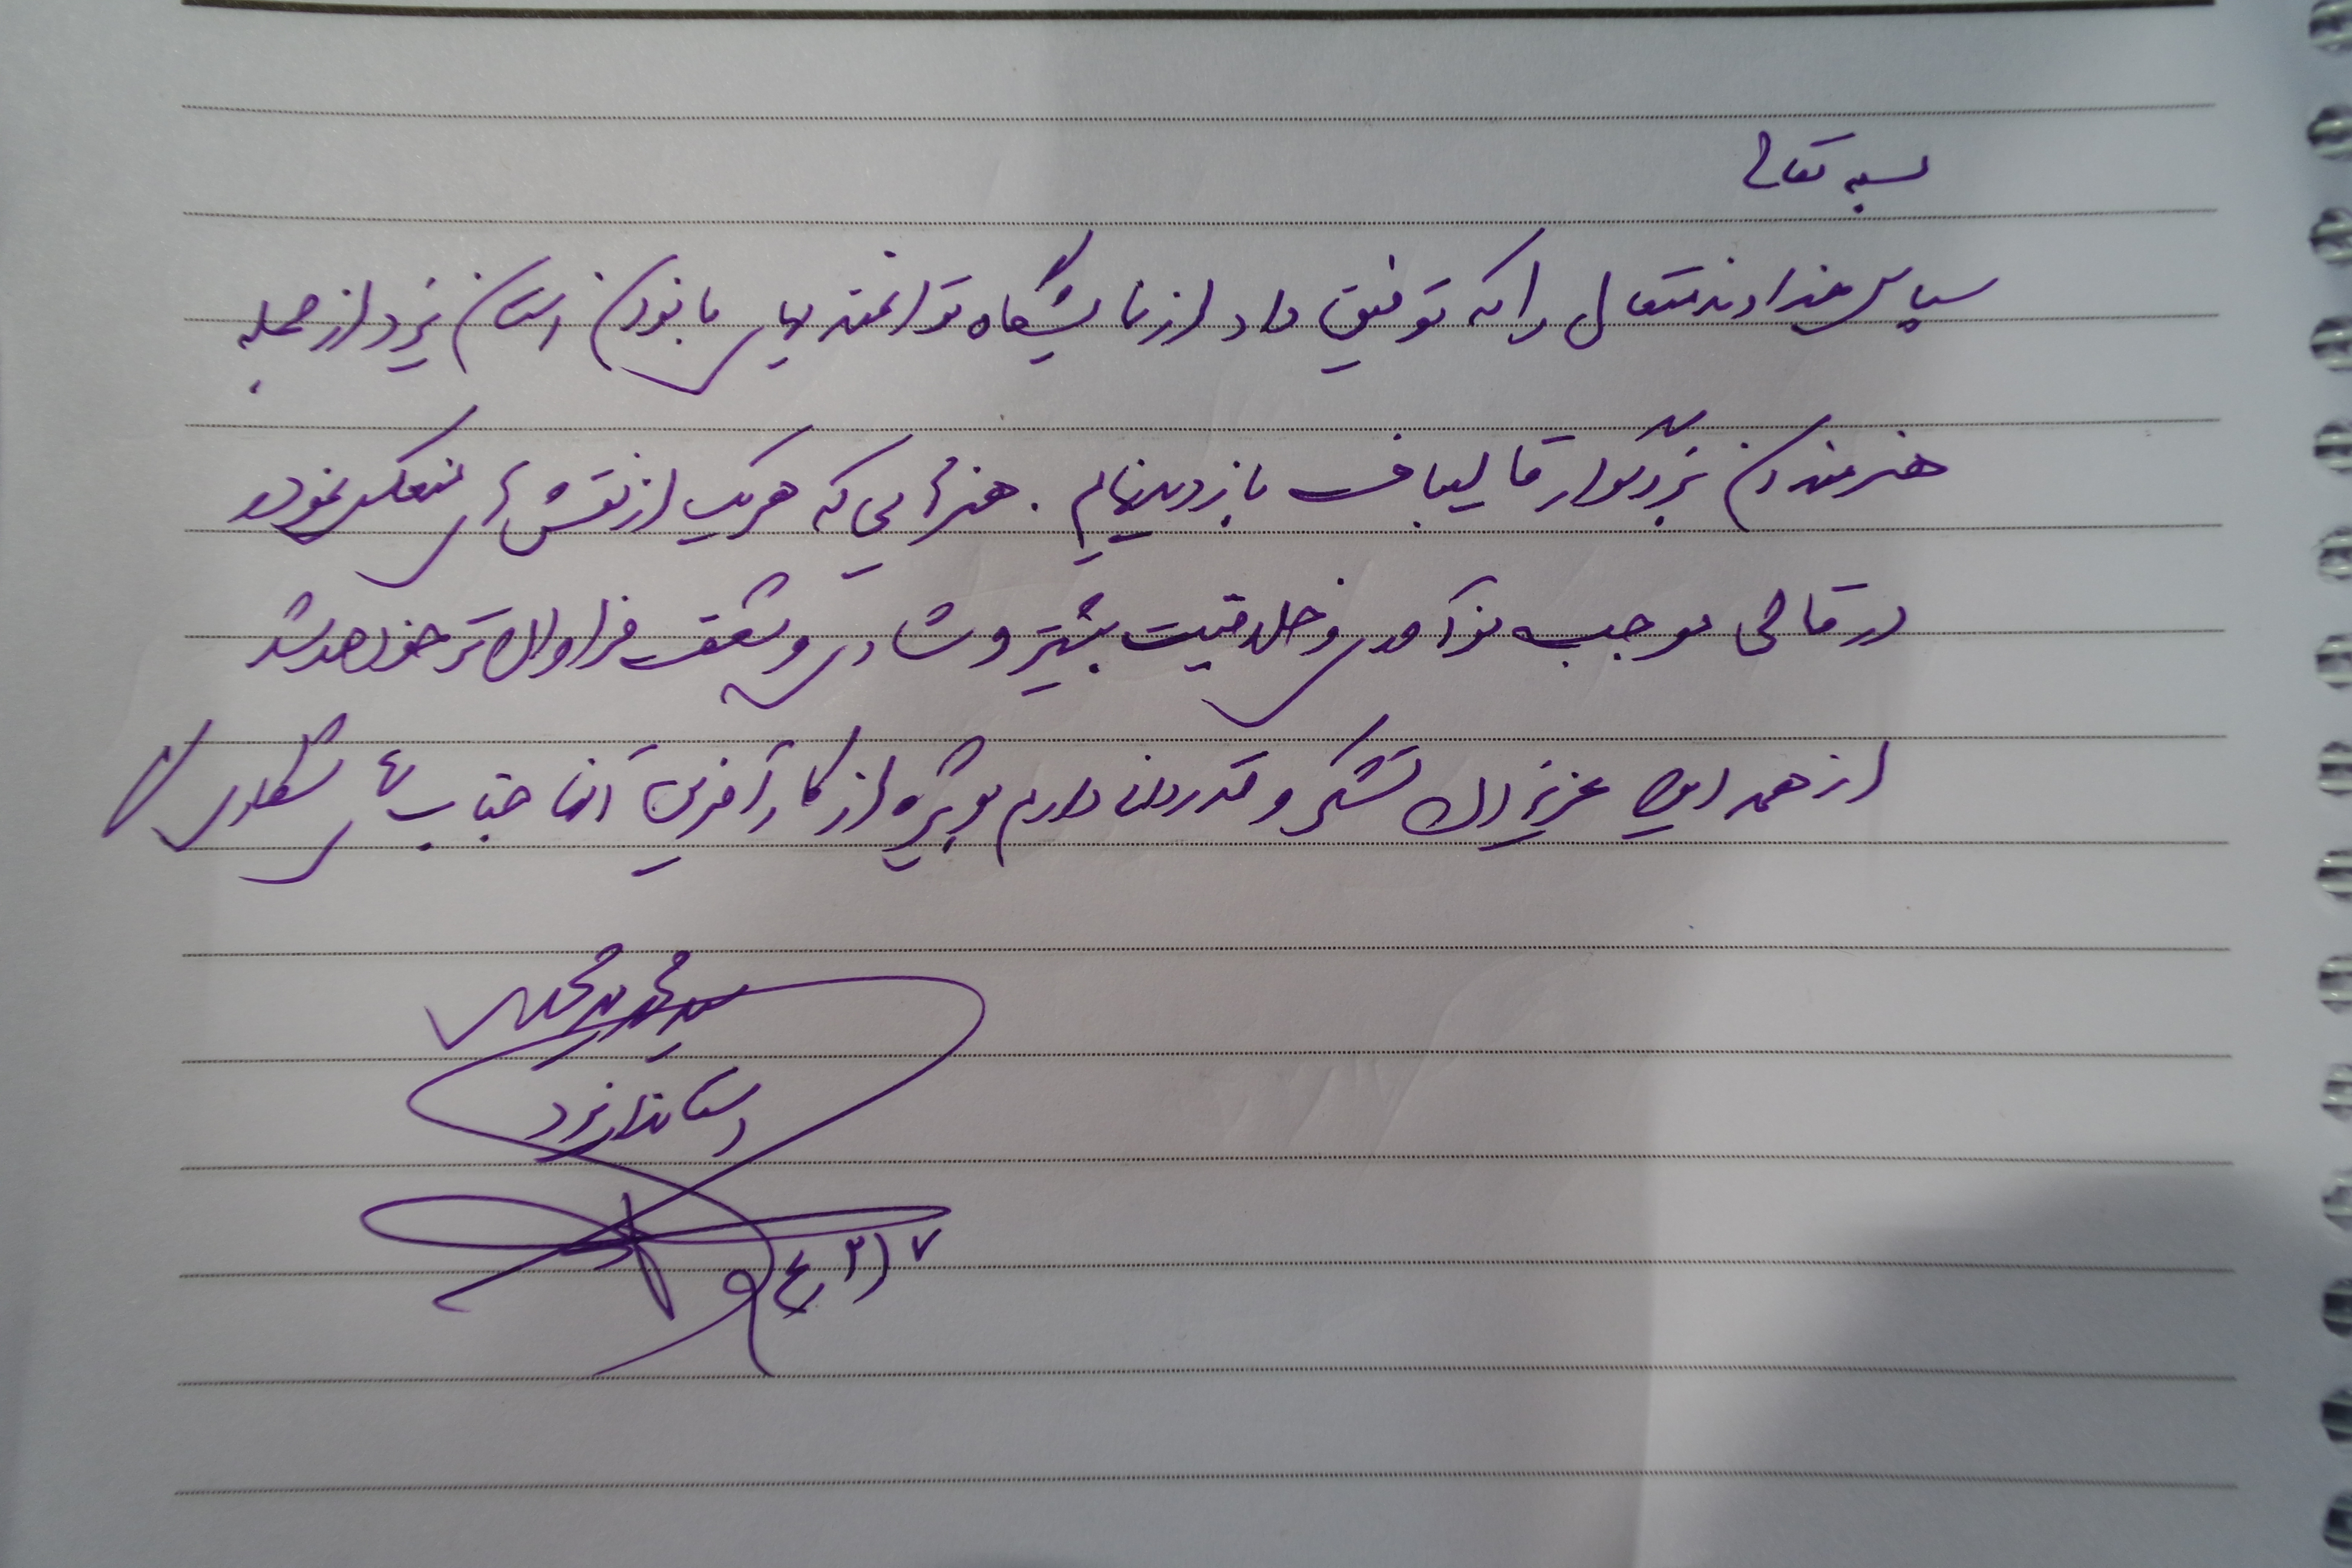 بسمه تعالی
سپاس خداوند متعال را که توفیق داد از نمایشگاه توانمندیهای بانوان استان یزد از جمله
هنرمندان بزرگوار قالیباف بازدید نمایم. هنرهایی که هر یک از نقش های منعکس نموده
در قالی موجب نوآوری و خلاقیت بیشتر و شادی و شعف فراوان تر خواهد شد
از همه این عزیزان تشکر و قدردانی دارم بویژه از کارآفرین آنها جناب
سید محمد
استاندار یزد
۷/۳/